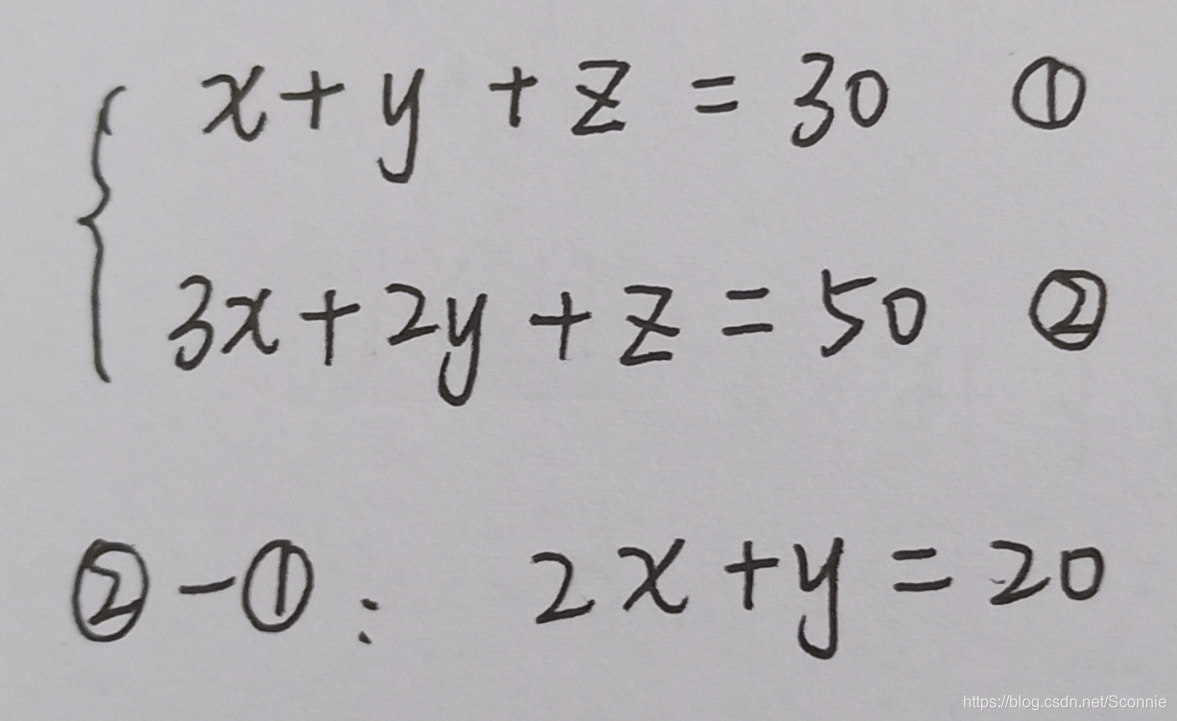 x + y + z = 30 ①
3x + 2y + z = 50 ②
② - ① : 2x + y = 20
https://blog.csdn.net/Sconnie